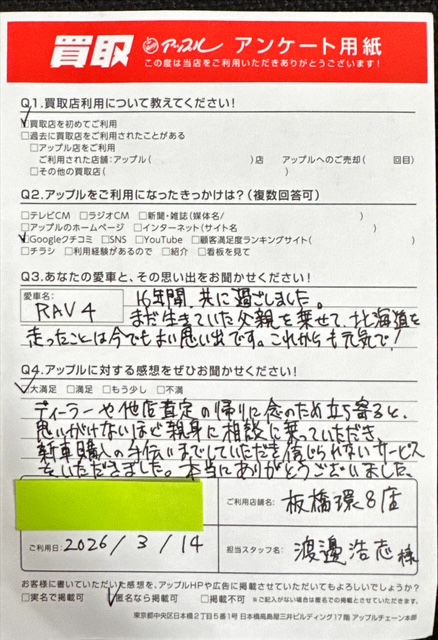 買取 アップル アンケート用紙
この度は当店をご利用いただきありがとうございます!
Q1.買取店利用について教えてください!
☑買取店を初めてご利用
□過去に買取店をご利用されたことがある
□アップル店をご利用
ご利用された店舗:アップル( )店 アップルへのご売却( 回目)
□その他の買取店( )
Q2.アップルをご利用になったきっかけは?(複数回答可)
□テレビCM □ラジオCM □新聞・雑誌(媒体名/ )
□アップルのホームページ □インターネット(サイト名 )
☑Googleクチコミ □SNS □YouTube □顧客満足度ランキングサイト( )
□チラシ □利用経験があるので □紹介 □看板を見て
Q3.あなたの愛車と、その思い出をお聞かせください!
愛車名/
RAV4
16年間、共に過ごしました。
まだ生きていた父親を乗せて、北海道を
走ったことは今でもよい思い出です。これからも元気で!
Q4.アップルに対する感想をぜひお聞かせください!
☑大満足 □満足 □もう少し □不満
ディーラーや他店査定の帰りに念のため立ち寄ると、
思いがけないほど親身に相談に乗っていただき
新車購入の手伝いまでしていただき信じられないサービス
をいただきました。本当にありがとうございました。
ご利用店舗名: 板橋環8店
ご利用日: 2026/3/14
担当スタッフ名: 渡邊浩志様
お客様に書いていただいた感想を、アップルHPや広告に掲載させていただいてもよろしいでしょうか?
□実名で掲載可 ☑匿名なら掲載可 □掲載不可 ※ご記入がない場合は匿名での掲載とさせていただきます。
東京都中央区日本橋2丁目5番1号 日本橋髙島屋三井ビルディング17階 アップルチェーン本部